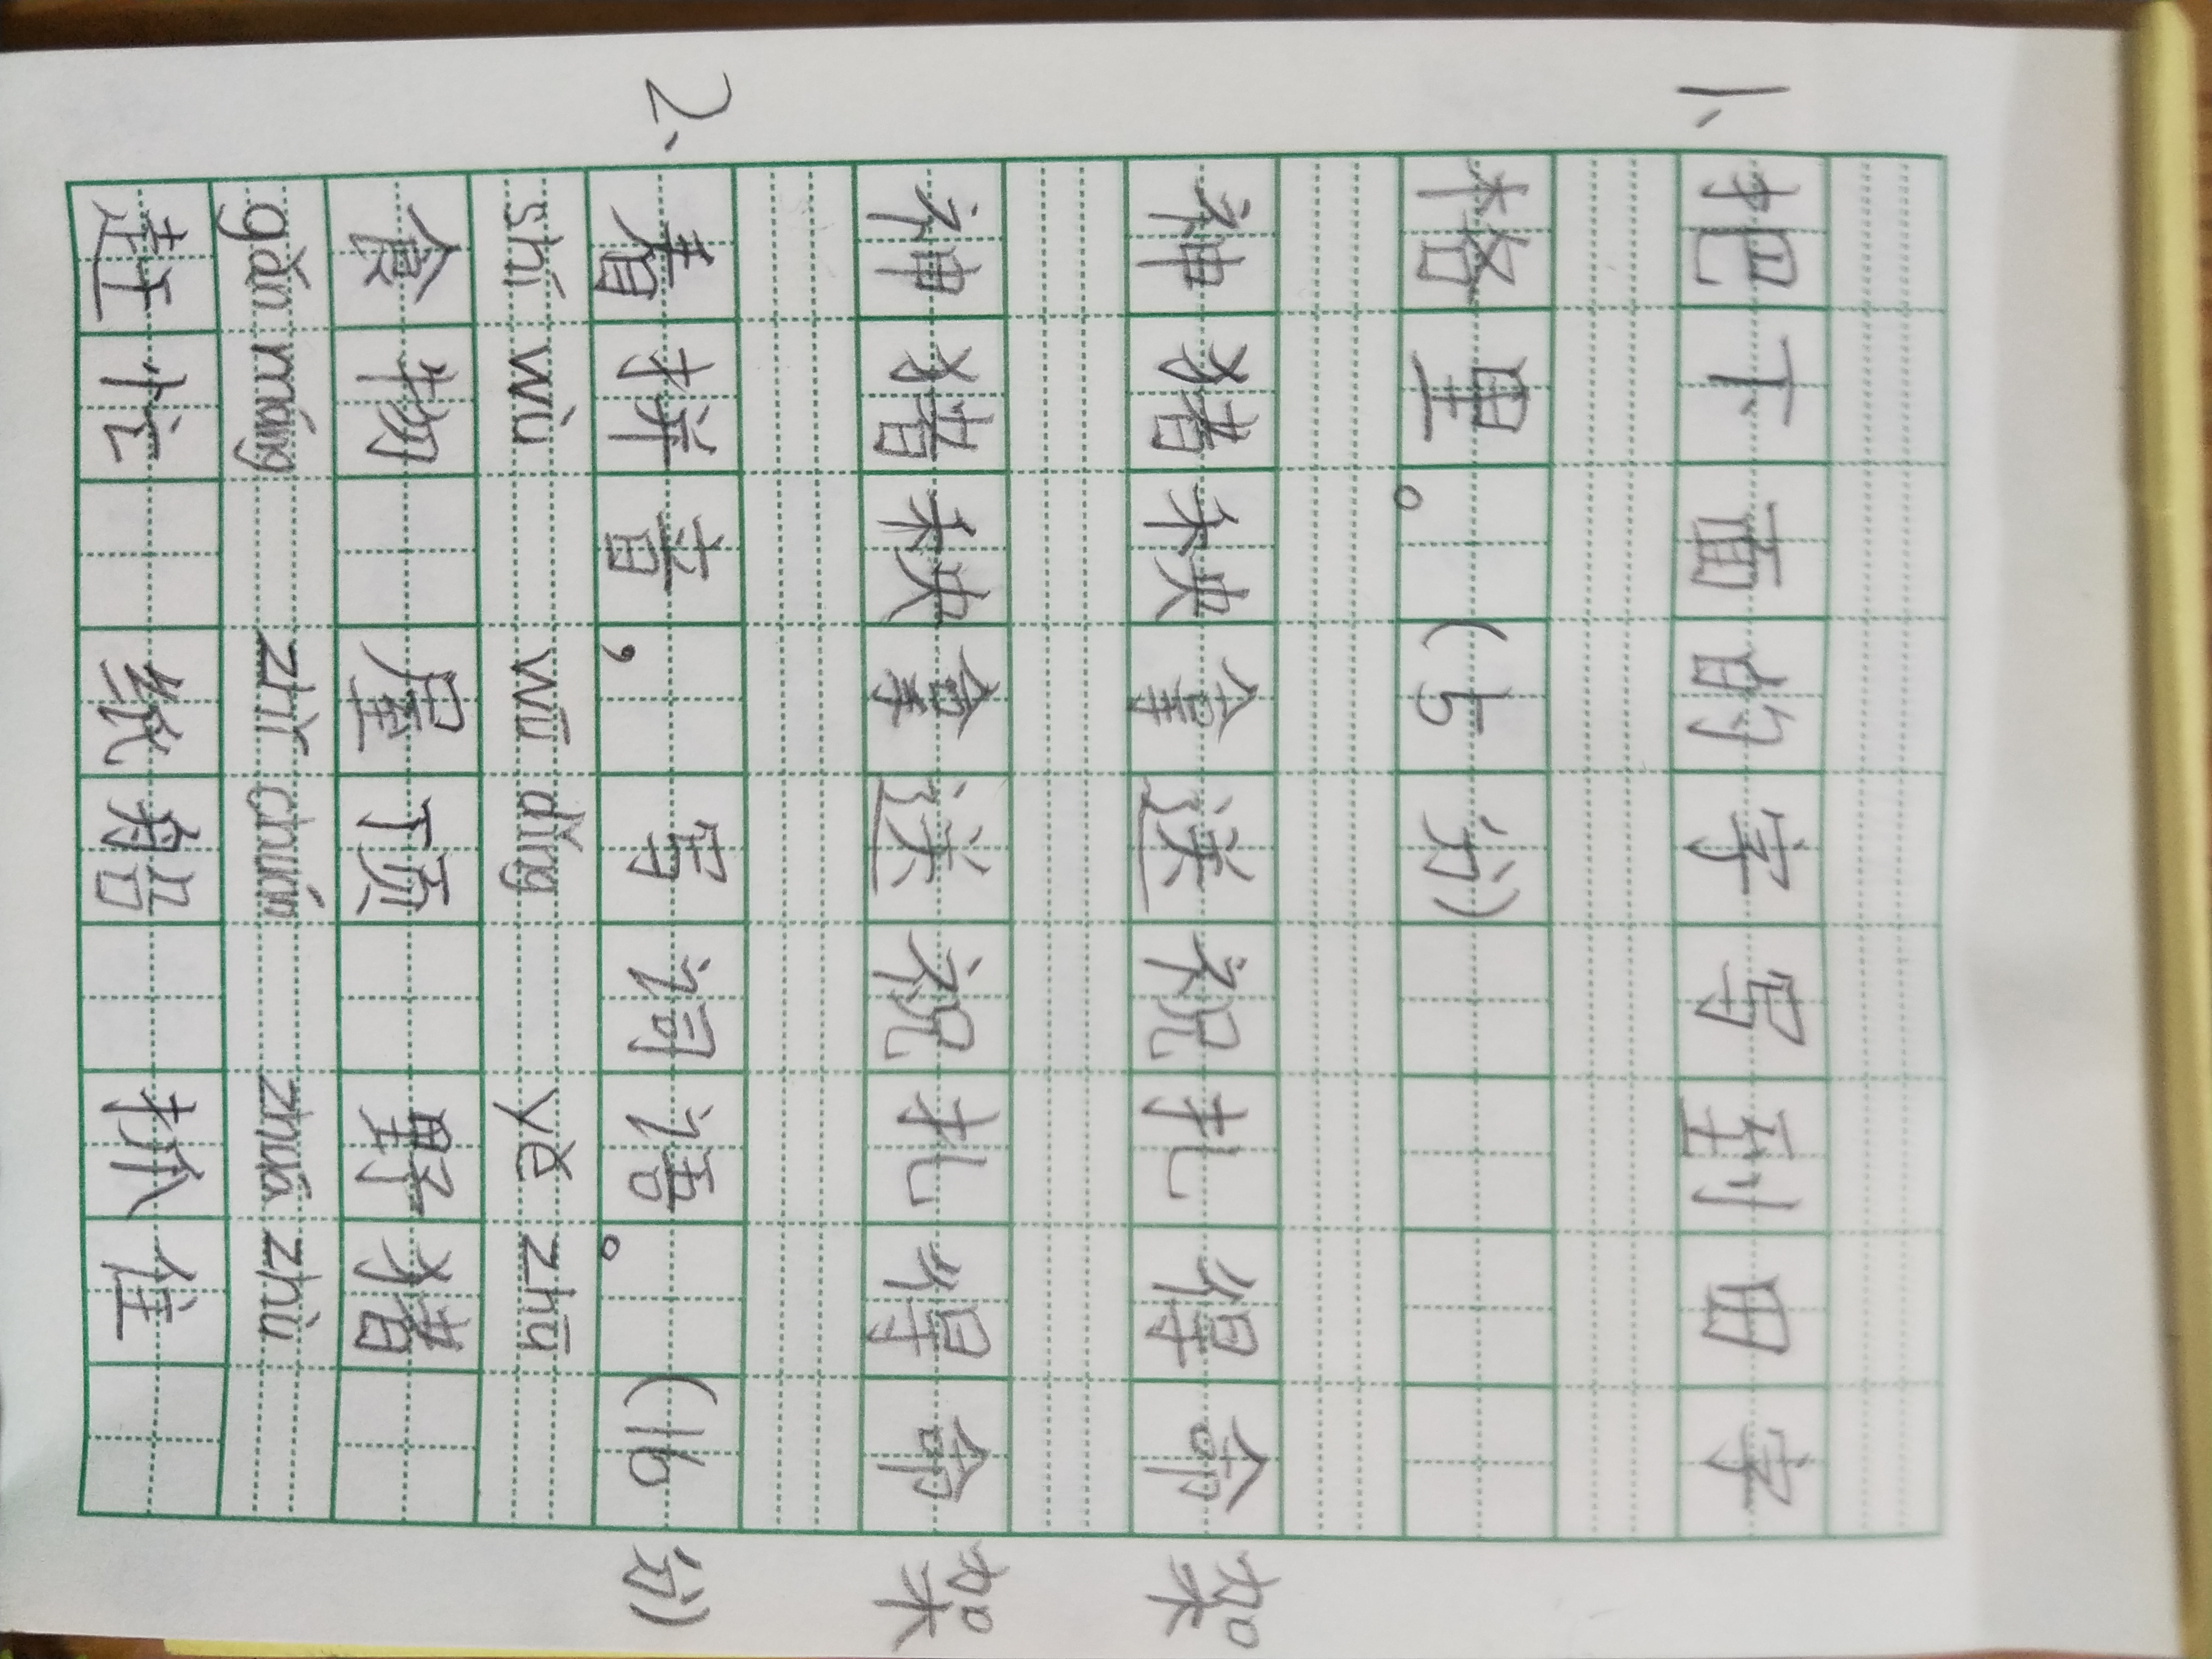 1、把下面的字写到田字
格里。(15分)
神猪秧拿送祝扎得命架
神猪秧拿送祝扎得命架
2、看拼音，写词语。(16分)
shí wù wū dǐng yě zhū
食物 屋顶 野猪
gǎn máng zhǐ chuán zhuā zhù
赶忙 纸船 抓住